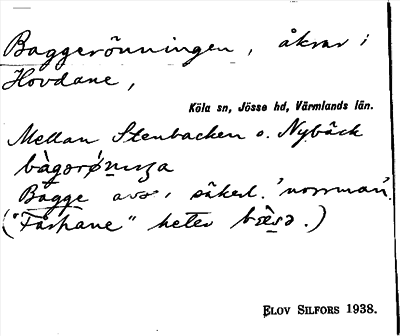 Baggerönningen, åkrar i
Hovdane,
Köla sn, Jösse hd, Värmlands län.
Mellan Stenbacken o. Nybäck
Bagge avs. säkerl. 'norrman'.
("Fårhane" heter .)
ELOV SILFORS 1938.